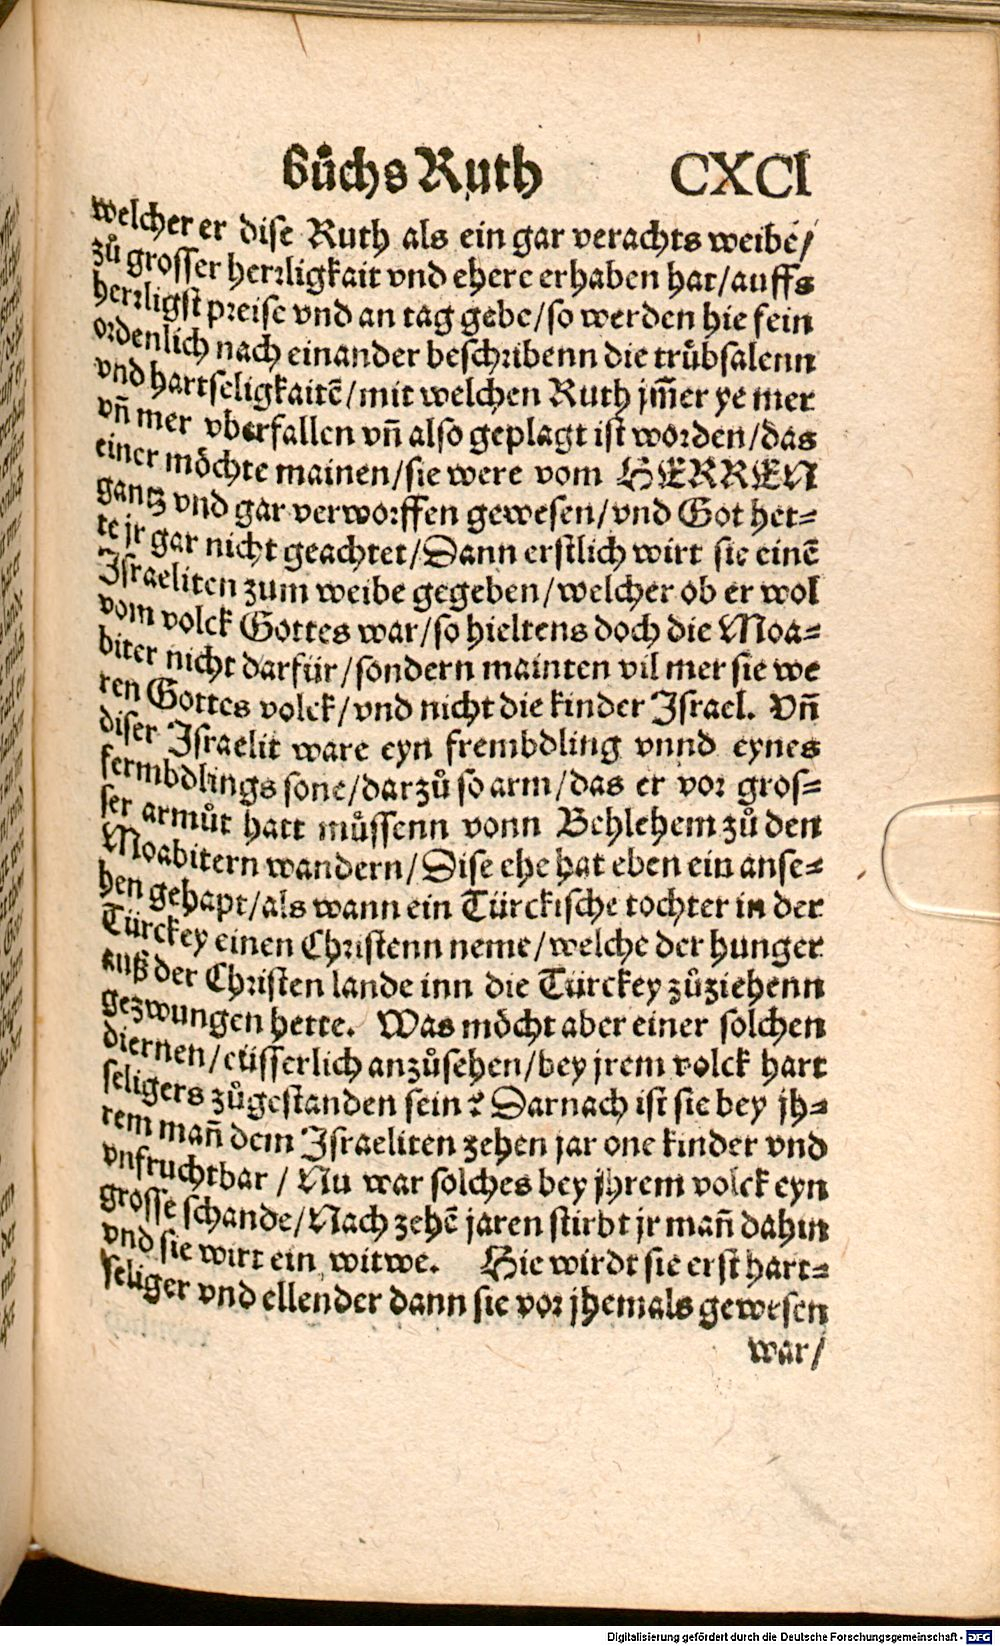 bůchs Ruth CXCI
welcher er dise Ruth als ein gar verachts weibe/
zů grosser herrligkait vnd ehere erhaben hat/auffs
herrligst preise vnd an tag gebe/so werden hie fein
ordenlich nach einander beschribenn die trůbsalenn
vnd hartseligkaitē/mit welchen Ruth jm̄er ye mer
vn̄ mer vberfallen vn̄ also geplagt ist worden/das
einer möchte mainen/sie were vom HERREN
gantz vnd gar verworffen gewesen/vnd Got het=
te jr gar nicht geachtet/Dann erstlich wirt sie einē
Israeliten zum weibe gegeben/welcher ob er wol
vom volck Gottes war/so hieltens doch die Moa=
biter nicht darfür/sondern mainten vil mer sie we
ren Gottes volck/vnd nicht die kinder Israel. Vn̄
diser Israelit ware eyn frembdling vnnd eynes
fermbdlings sone/darzů so arm/das er vor gros=
ser armůt hatt můssenn vonn Behlehem zů den
Moabitern wandern/Dise ehe hat eben ein anse=
hen gehapt/als wann ein Türckische tochter in der
Türckey einen Christenn neme/welche der hunger
auß der Christen lande inn die Türckey zůziehenn
gezwungen hette. Was möcht aber einer solchen
diernen/eüsserlich anzůsehen/bey jrem volck hart
seligers zůgestanden sein? Darnach ist sie bey jh=
rem man̄ dem Israeliten zehen jar one kinder vnd
vnfruchtbar / Nu war solches bey jhrem volck eyn
grosse schande/Nach zehē jaren stirbt jr man̄ dahin
vnd sie wirt ein witwe. Hie wirdt sie erst hart=
seliger vnd ellender dann sie vor jhemals gewesen
war/
Digitalisierung gefördert durch die Deutsche Forschungsgemeinschaft - DFG